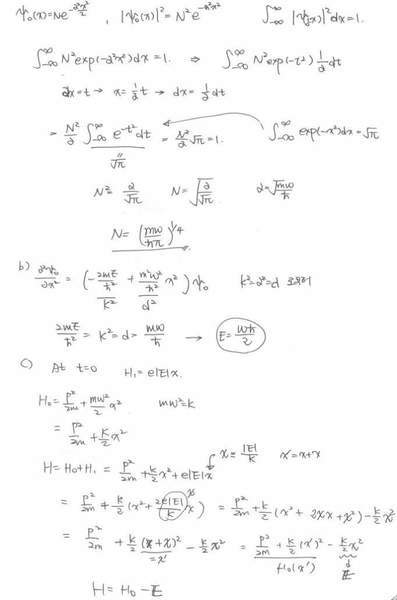 ψ₀(x)=Ne^{-a²x²/2}, |ψ₀(x)|²=N²e^{-a²x²} ∫_{-∞}^{∞} |ψ₀(x)|² dx=1.
∫_{-∞}^{∞} N² exp(-a²x²)dx=1. ⇒ ∫_{-∞}^{∞} N² exp(-t²) 1/a dt
ax=t → x=1/a t → dx=1/a dt
= N²/a ∫_{-∞}^{∞} e^{-t²}dt = N²/a √π=1. ∫_{-∞}^{∞} exp(-x²)dx=√π
√π
N²= a/√π N=√(a/√π) a=√(mω/ħ)
N= (mω/ħπ)^{1/4}
b) ∂²ψ₀/∂x² = (-2mE/ħ² + m²ω²/ħ² x²) ψ₀ k²=a²=d
k² d²
2mE/ħ² = k²=d= mω/ħ → E= ωħ/2
c) At t=0 H₁=e|E|x.
H₀= p²/2m + mω²/2 x² mω²=k
= p²/2m + k/2 x²
H=H₀+H₁ = p²/2m + k/2 x² + e|E|x
= p²/2m + k/2 (x²+ 2e|E|/k x) = p²/2m + k/2 (x²+
= p²/2m + k/2 = p²/2m + k/2 (x')² -
=x' H₀(x')
H = H₀ - E